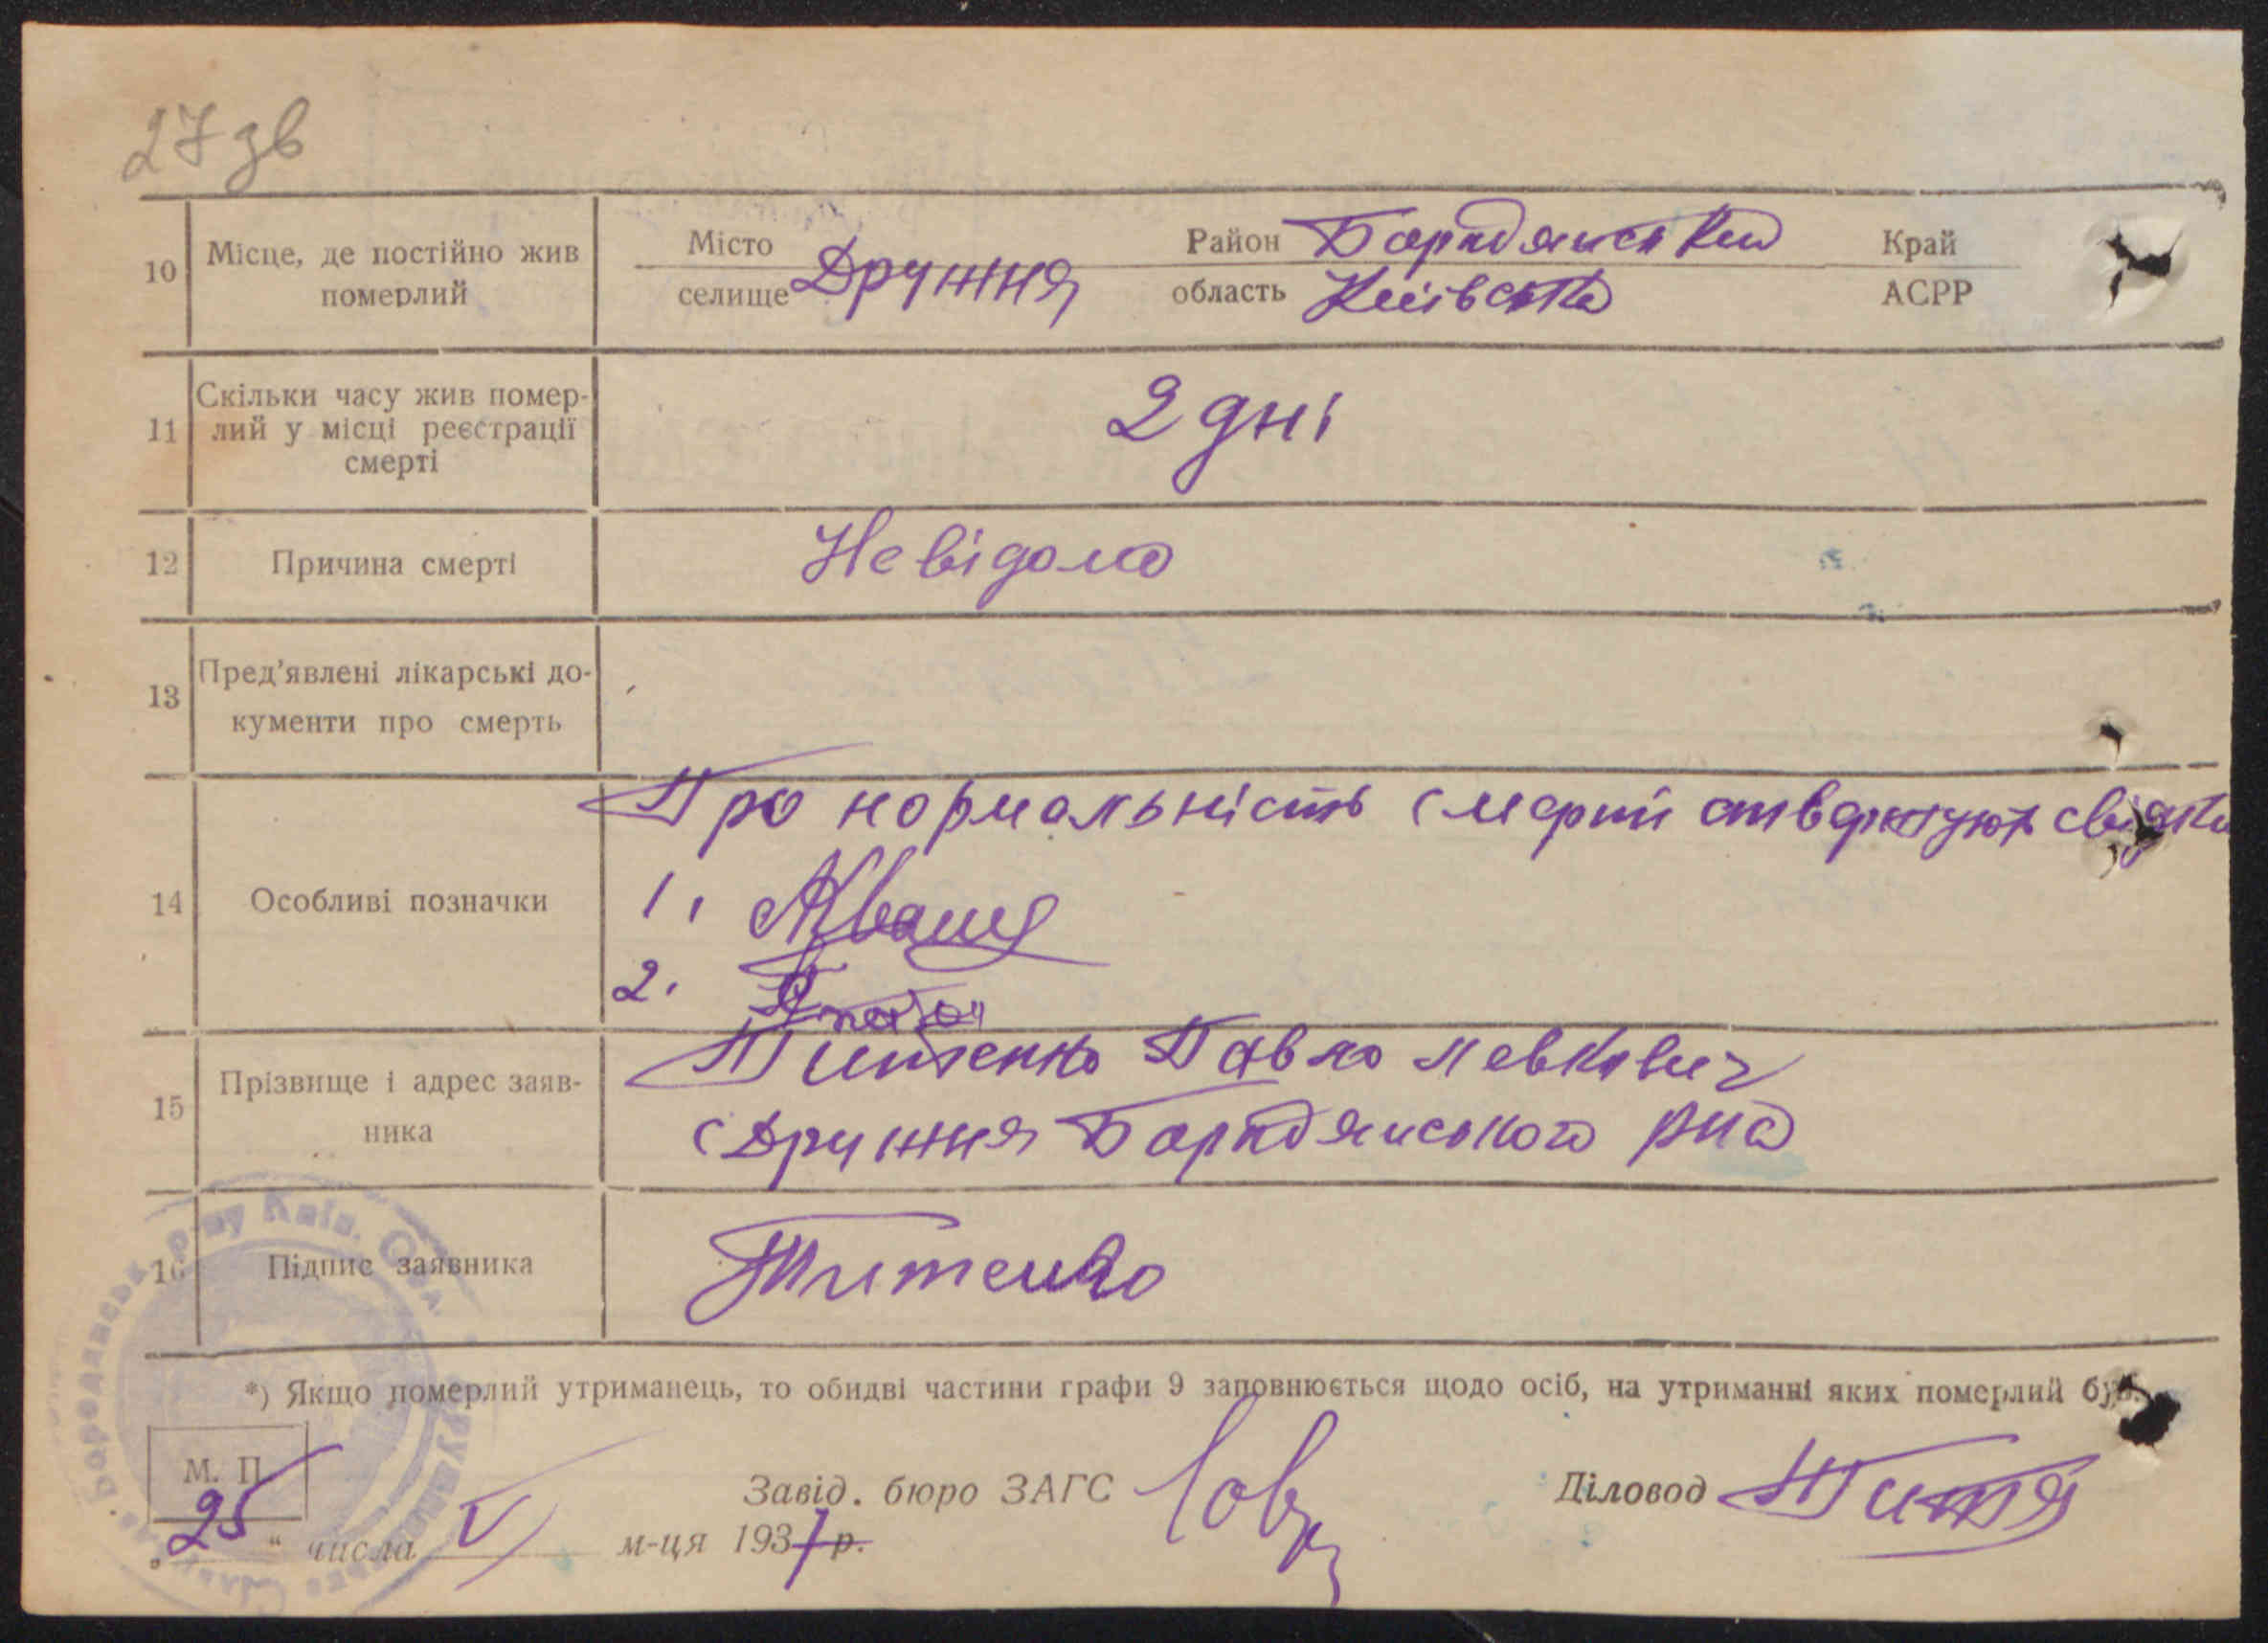 27 зв
10 Місце, де постійно жив померлий
Місто селище Дружня Район Бородянський Край
область Київська АСРР
11 Скільки часу жив помер-
лий у місці реєстрації
смерті
2 дні
12 Причина смерті Невідома
13 Пред'явлені лікарські до-
кументи про смерть
14 Особливі позначки
Про нормальність смерти ствержують свідки
1.
2.
15 Прізвище і адрес заяв-
ника
Титенко Павло Левкович
с Дружня Бородянського рна
16 Підпис заявника Титенко
*) Якщо померлий утриманець, то обидві частини графи 9 заповнюється щодо осіб, на утриманні яких померлий був.
М. П.
Завід. бюро ЗАГС Діловод
„25“ числа V м-ця 1937 р.